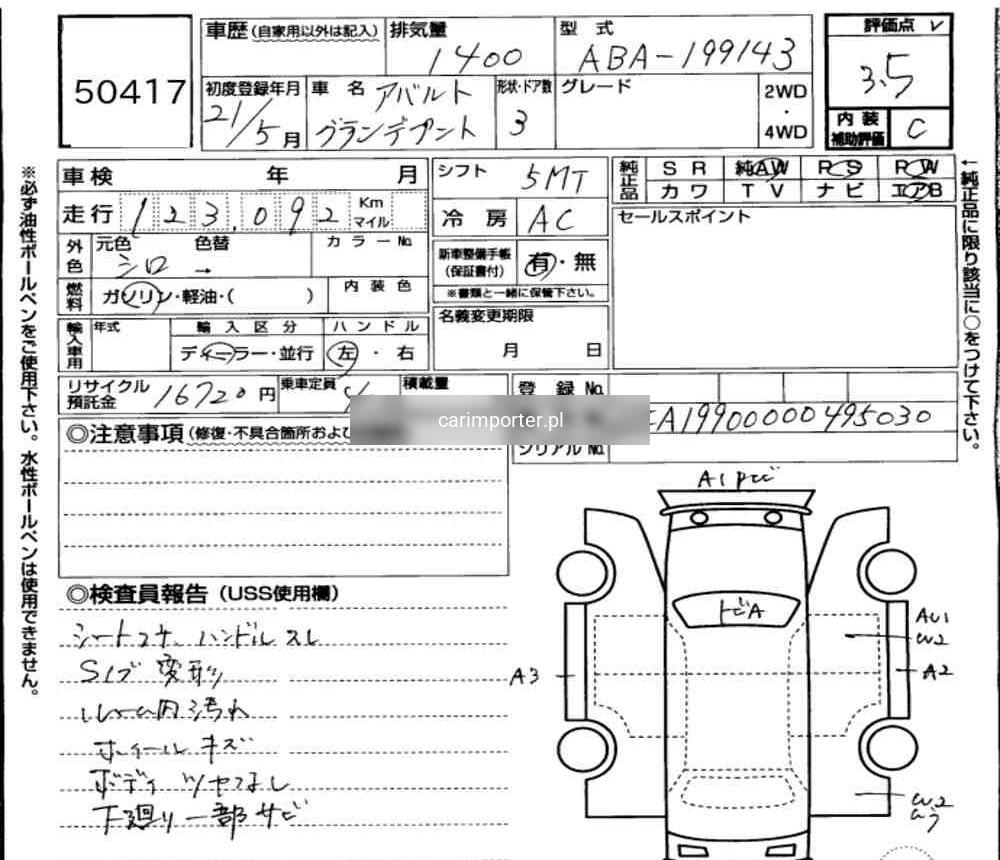 50417
車歴（自家用以外は記入） 排気量 1400 型式 ABA-199143
評価点 3.5
初度登録年月 21/5月 車名 アバルト グランデプント 形状・ドア数 3 グレード 2WD・4WD
内装補助評価 C
車検 年 月
走行 123,092 Km マイル
外色 元色 シロ 色替 → カラーNo.
燃料 ガソリン・軽油・（ ） 内装色
輸入車用 年式 輸入区分 ディーラー・並行 ハンドル 左・右
リサイクル預託金 16720円 乗車定員 積載量
シフト 5MT
冷房 AC
新車整備手帳（保証書付） 有・無
※書類と一緒に保管下さい。
名義変更期限
月 日
純正品 SR 純AW PS PW
カワ TV ナビ エアB
セールスポイント
登録No.
A19900000495030
シリアルNo.
carimporter.pl
◎注意事項（修復・不具合箇所およ
◎検査員報告（USS使用欄）
シートコゲ、ハンドルスレ
Sノブ変形
ルーム内汚れ
ホイールキズ
ボディツヤなし
下廻り一部サビ
A1Pビ
トビA
AU1
W2
A3
A2
W2
※必ず油性ボールペンをご使用下さい。水性ボールペンは使用できません。
←純正品に限り該当に○をつけて下さい。